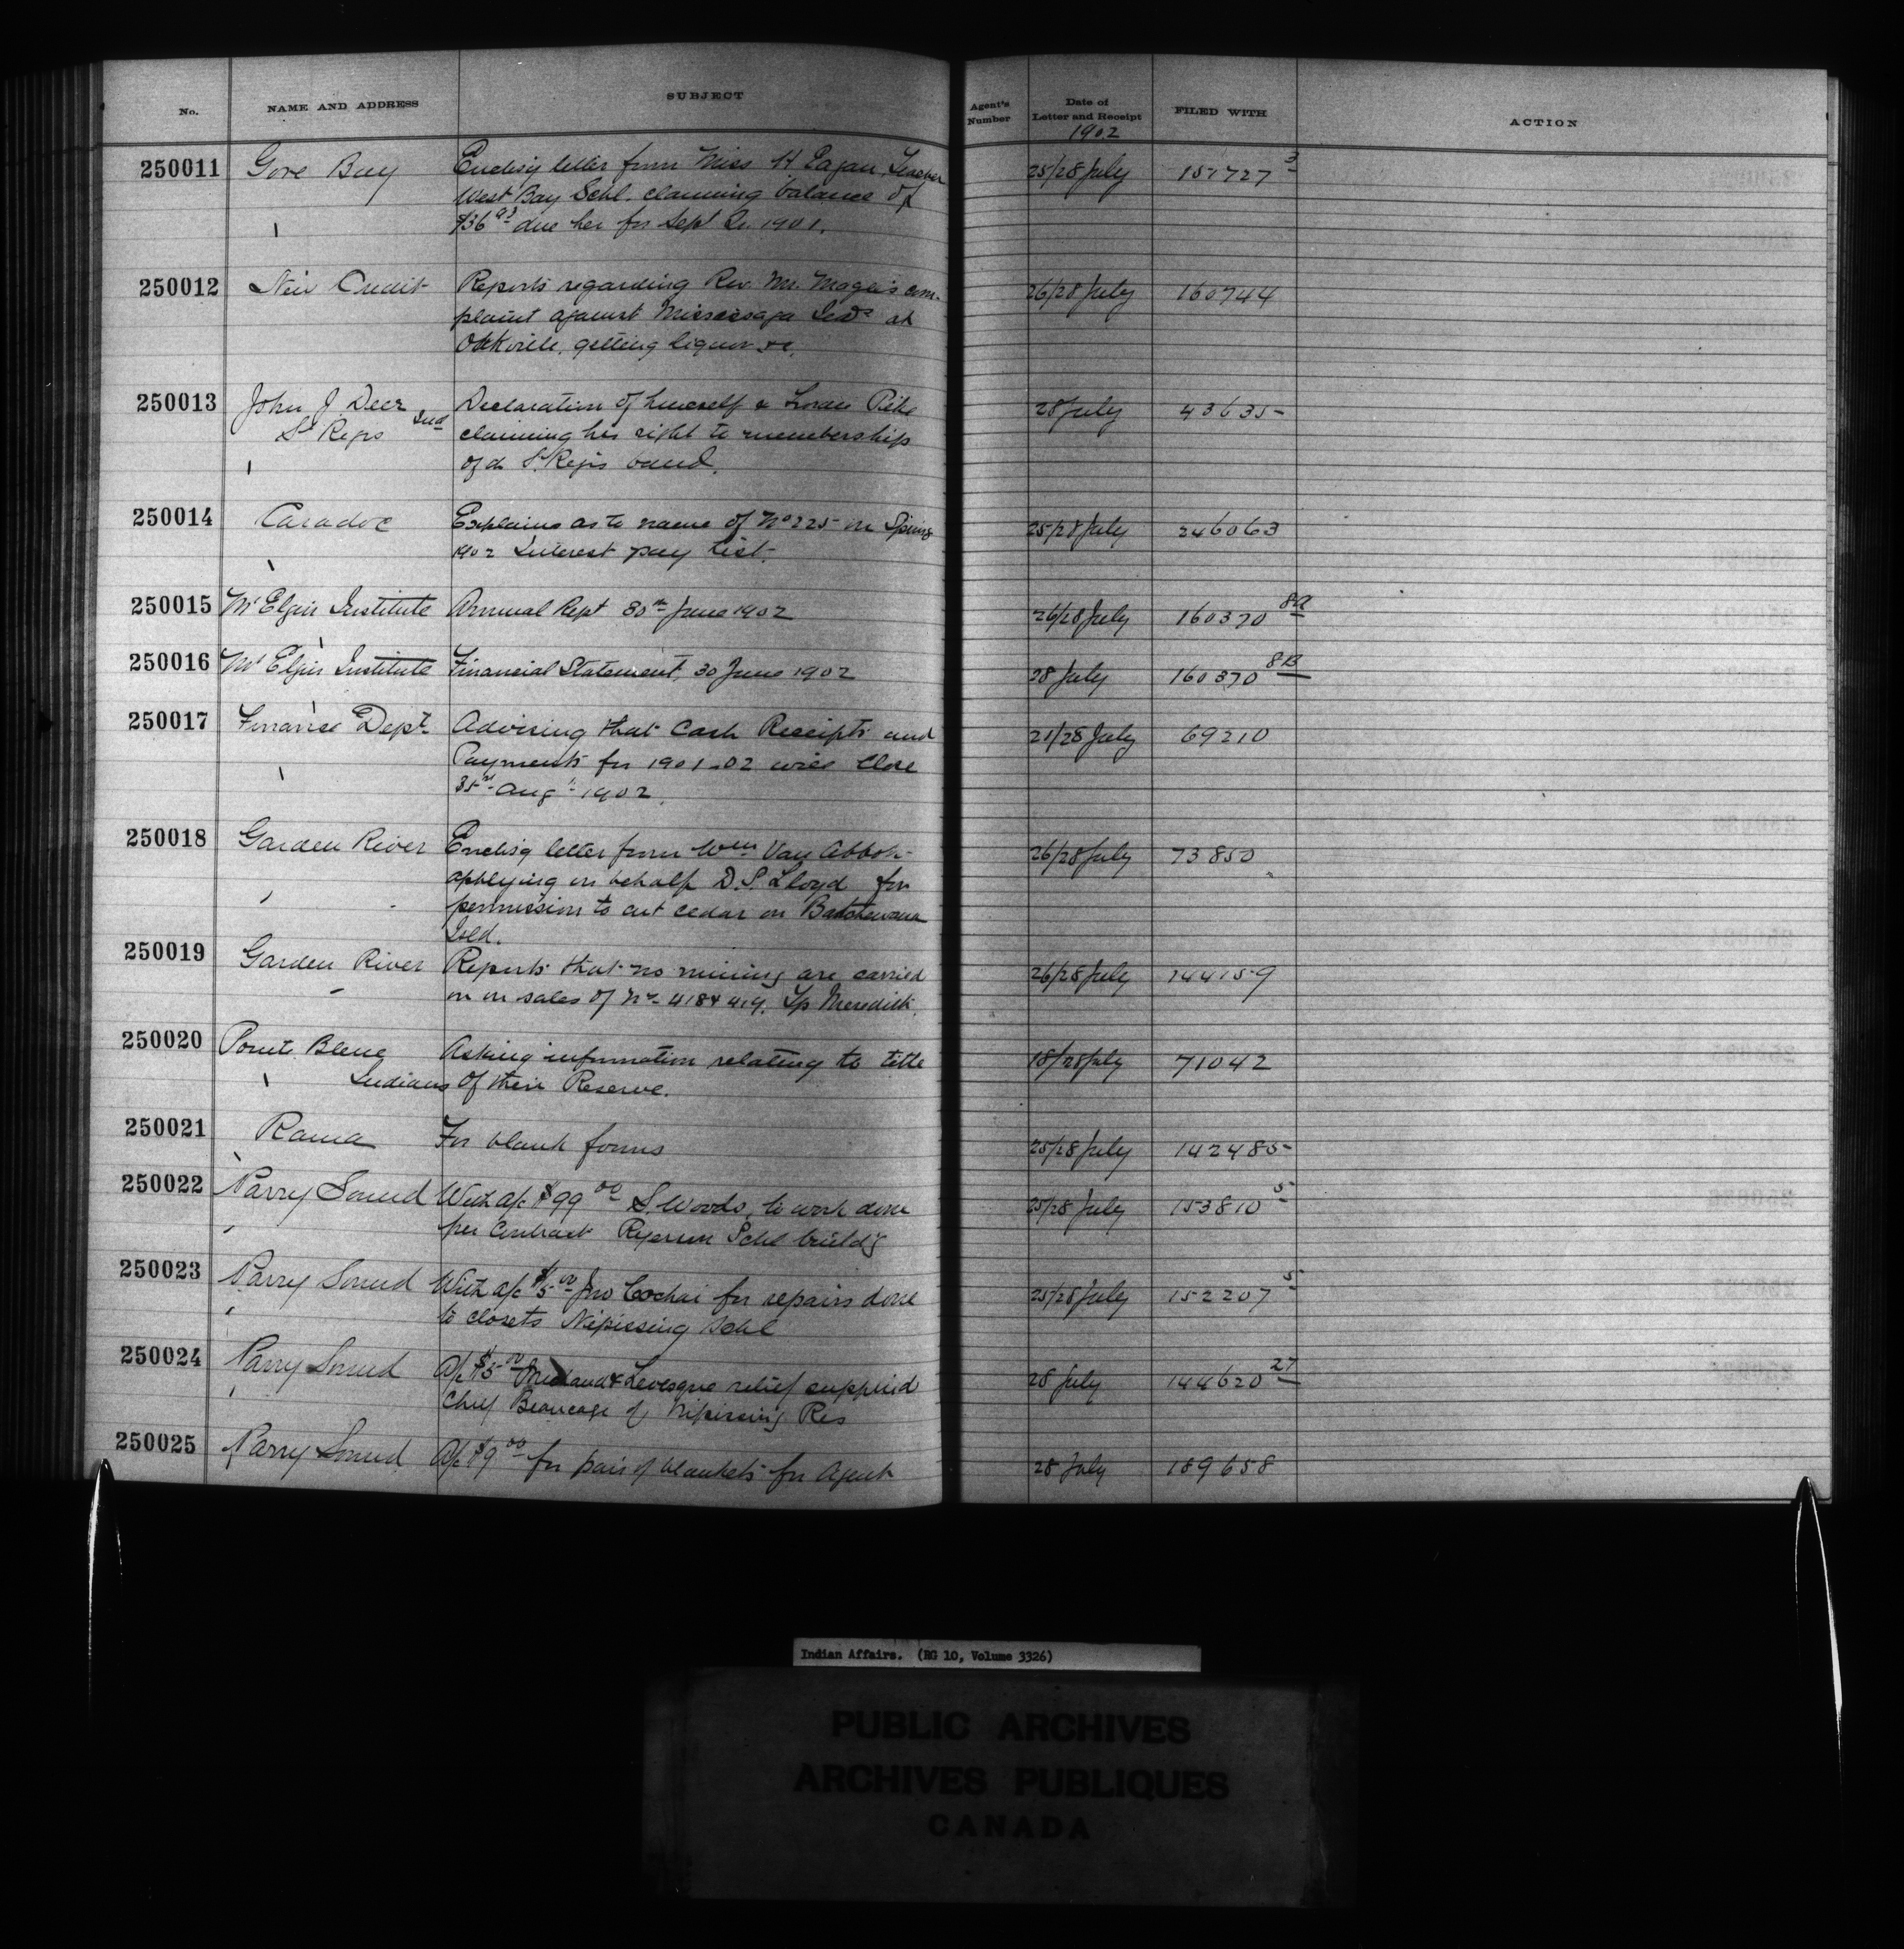 No. NAME AND ADDRESS SUBJECT Agent's Number Date of Letter and Receipt FILED WITH ACTION
1902
250011 Gore Bay Enclos'g letter from Miss H Eagan, Teacher 25/28 July 151727 3
West Bay Schl. claiming balance of
$36 93 due her for Sept Qr. 1901.
250012 New Credit Reports regarding Rev. Mr. Magee's com- 26/28 July 160744
plaint against Mississaga Inds at
Oakville, getting liquor &c.
250013 John J Deer Declaration of himself & Pike 28 July 43635
St Regis Ind claiming his right to membership
of St. Regis band.
250014 Caradoc Explains as to name of No 225 on Spring 25/28 July 246063
1902 Interest pay list.
250015 Mt Elgin Institute Annual Rept 30th June 1902 26/28 July 160370 8A
250016 Mt Elgin Institute Financial Statement, 30 June 1902 28 July 160370 8B
250017 Finance Dept Advising that Cash Receipts and 21/28 July 69210
Payments for 1901-02 will close
Augt 1902.
250018 Garden River Enclos'g letter from Wm Van Abbott 26/28 July 73850
applying on behalf D. S. Lloyd for
permission to cut cedar on Batchewana
Isld.
250019 Garden River Reports that no mining are carried 26/28 July 144159
on on sales of Nos 418 & 419. Tp Meredith.
250020 Pointe Bleue Asking information relating to title 18/28 July 71042
Indians of their Reserve.
250021 Rama For blank forms 25/28 July 142485
250022 Parry Sound With a/c $99 00 S. Woods, to work done 25/28 July 153810 5
per Contract Ryerson Schl build'g
250023 Parry Sound With a/c $5 00 Jno Cochai for repairs done 25/28 July 152207 5
to closets Nipissing Schl
250024 Parry Sound A/c $15 00 Michaud & Levesque relief supplied 28 July 144620 27
Chief Beaucage of Nipissing Res
250025 Parry Sound A/c $9 00 for pair of blankets for Agent 28 July 189658
Indian Affairs. (RG 10, Volume 3326)
PUBLIC ARCHIVES
ARCHIVES PUBLIQUES
CANADA